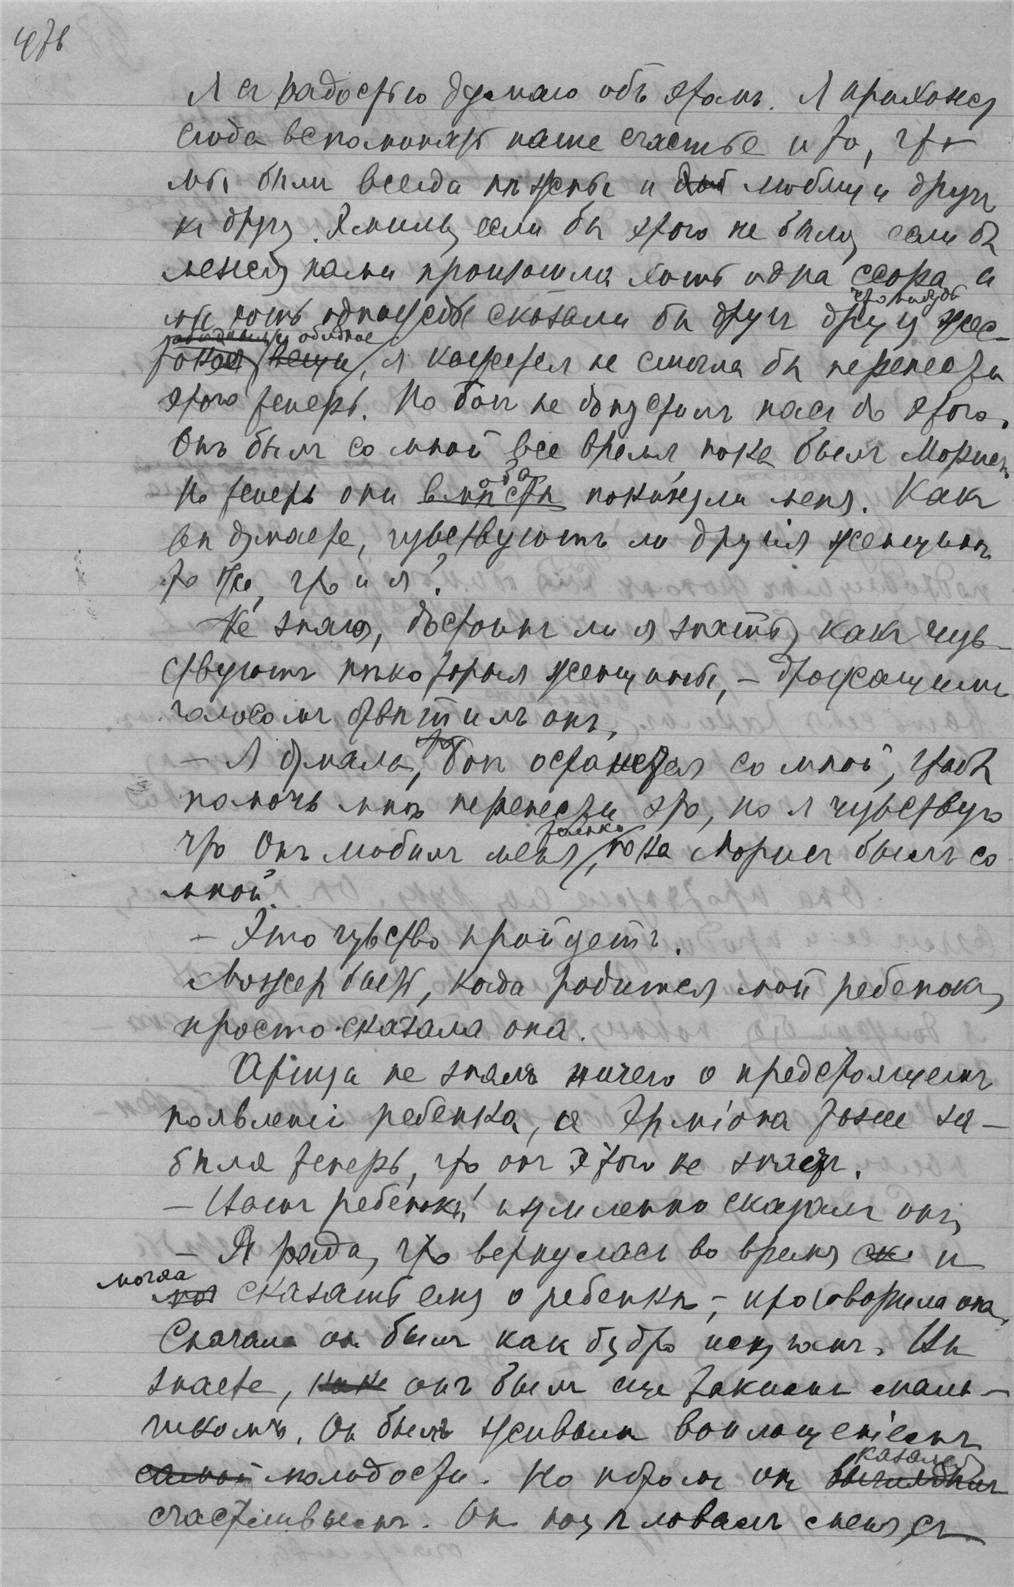 476
Я съ радостью думаю объ этомъ. Я прихожу
сюда вспоминать наше счастье и то, что
мы были всегда нѣжны и любящи другъ
къ другу. Я знаю, если бы этого не было, если бы
между нами произошла хоть одна ссора и
мы хоть однажды сказали бы другъ другу что нибудь
обидное, я кажется не смогла бы перенести
этого теперь. Но Богъ не допустилъ насъ до этого.
Онъ былъ со мной все время, пока былъ Морисъ.
Но теперь они оба покинули меня. Какъ
вы думаете, чувствуютъ ли другія женщины
то же, что и я?
Не знаю, достоинъ ли я знать, какъ чув-
ствуютъ нѣкоторыя женщины, – дрожащимъ
голосомъ отвѣтилъ онъ,
– Я думала, что Богъ останется со мной, чтобы
помочь мнѣ перенести это, но я чувствую
что Онъ любилъ меня, только пока Морисъ былъ со
мной.
– Это чувство пройдетъ.
Можетъ быть, когда родится мой ребенокъ,
просто сказала она.
не зналъ ничего о предстоящемъ
появленіи ребенка, а Эрміона тоже за-
была теперь, что онъ этого не знаетъ.
– Вашъ ребенокъ! изумленно сказалъ онъ,
– Я рада, что вернулась во время и
могла сказать ему о ребенкѣ, – проговорила она,
Сначала онъ былъ какъ будто испуганъ. Вы
знаете, онъ былъ еще такимъ маль-
чикомъ. Онъ былъ живымъ воплощеніемъ
молодости. Но потомъ онъ казался
счастливымъ. Онъ поцѣловалъ меня съ